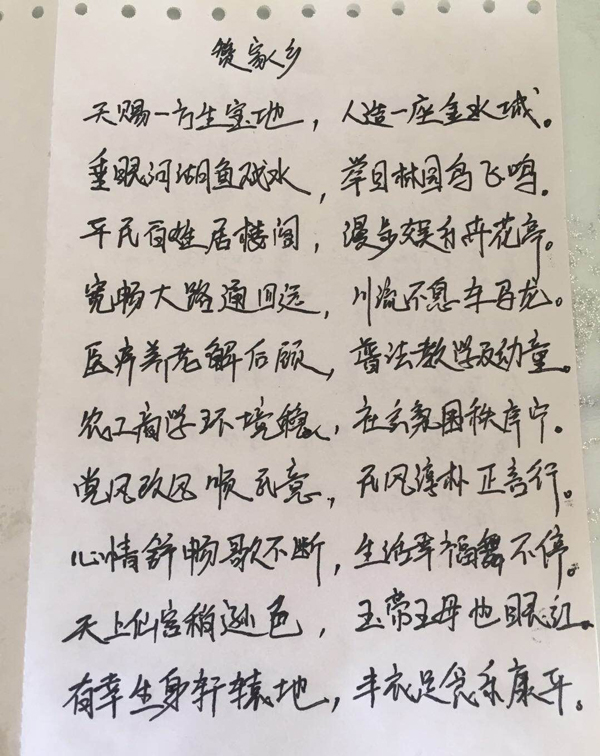 赞家乡
天赐一方生宝地，人造一座金水城。
垂眼河湖鱼戏水，举目林园鸟飞鸣。
平民百姓居楼阁，漫步娱乐卉花亭。
宽畅大路通回远，川流不息车马龙。
医疗养老解后顾，普法教学及幼童。
农工商学环境稳，社会氛围秩序宁。
党风政风顺民意，民风淳朴正言行。
心情舒畅歌不断，生活幸福舞不停。
天上仙宫稍逊色，玉帝王母也眼红。
有幸生身轩辕地，丰衣足食乐康平。